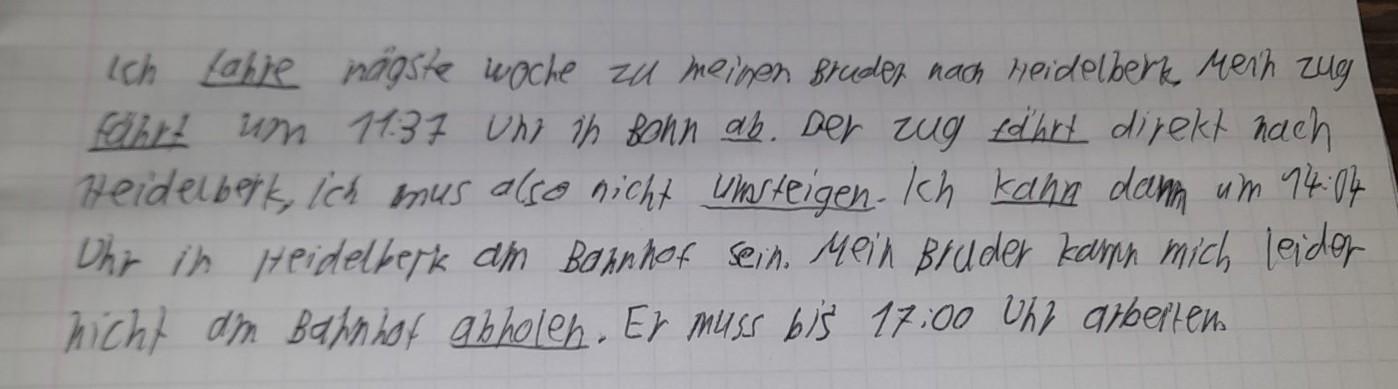 Ich fahre nägste woche zu meinen Bruder nach Heidelberk. Mein zug
fährt um 11:37 Uhr in Bonn ab. Der zug fährt direkt nach
Heidelberk, ich mus also nicht umsteigen. Ich kann dann um 14:04
Uhr in Heidelberk am Bahnhof sein. Mein Bruder kann mich leider
nicht am Bahnhof abholen. Er muss bis 17:00 Uhr arbeiten.